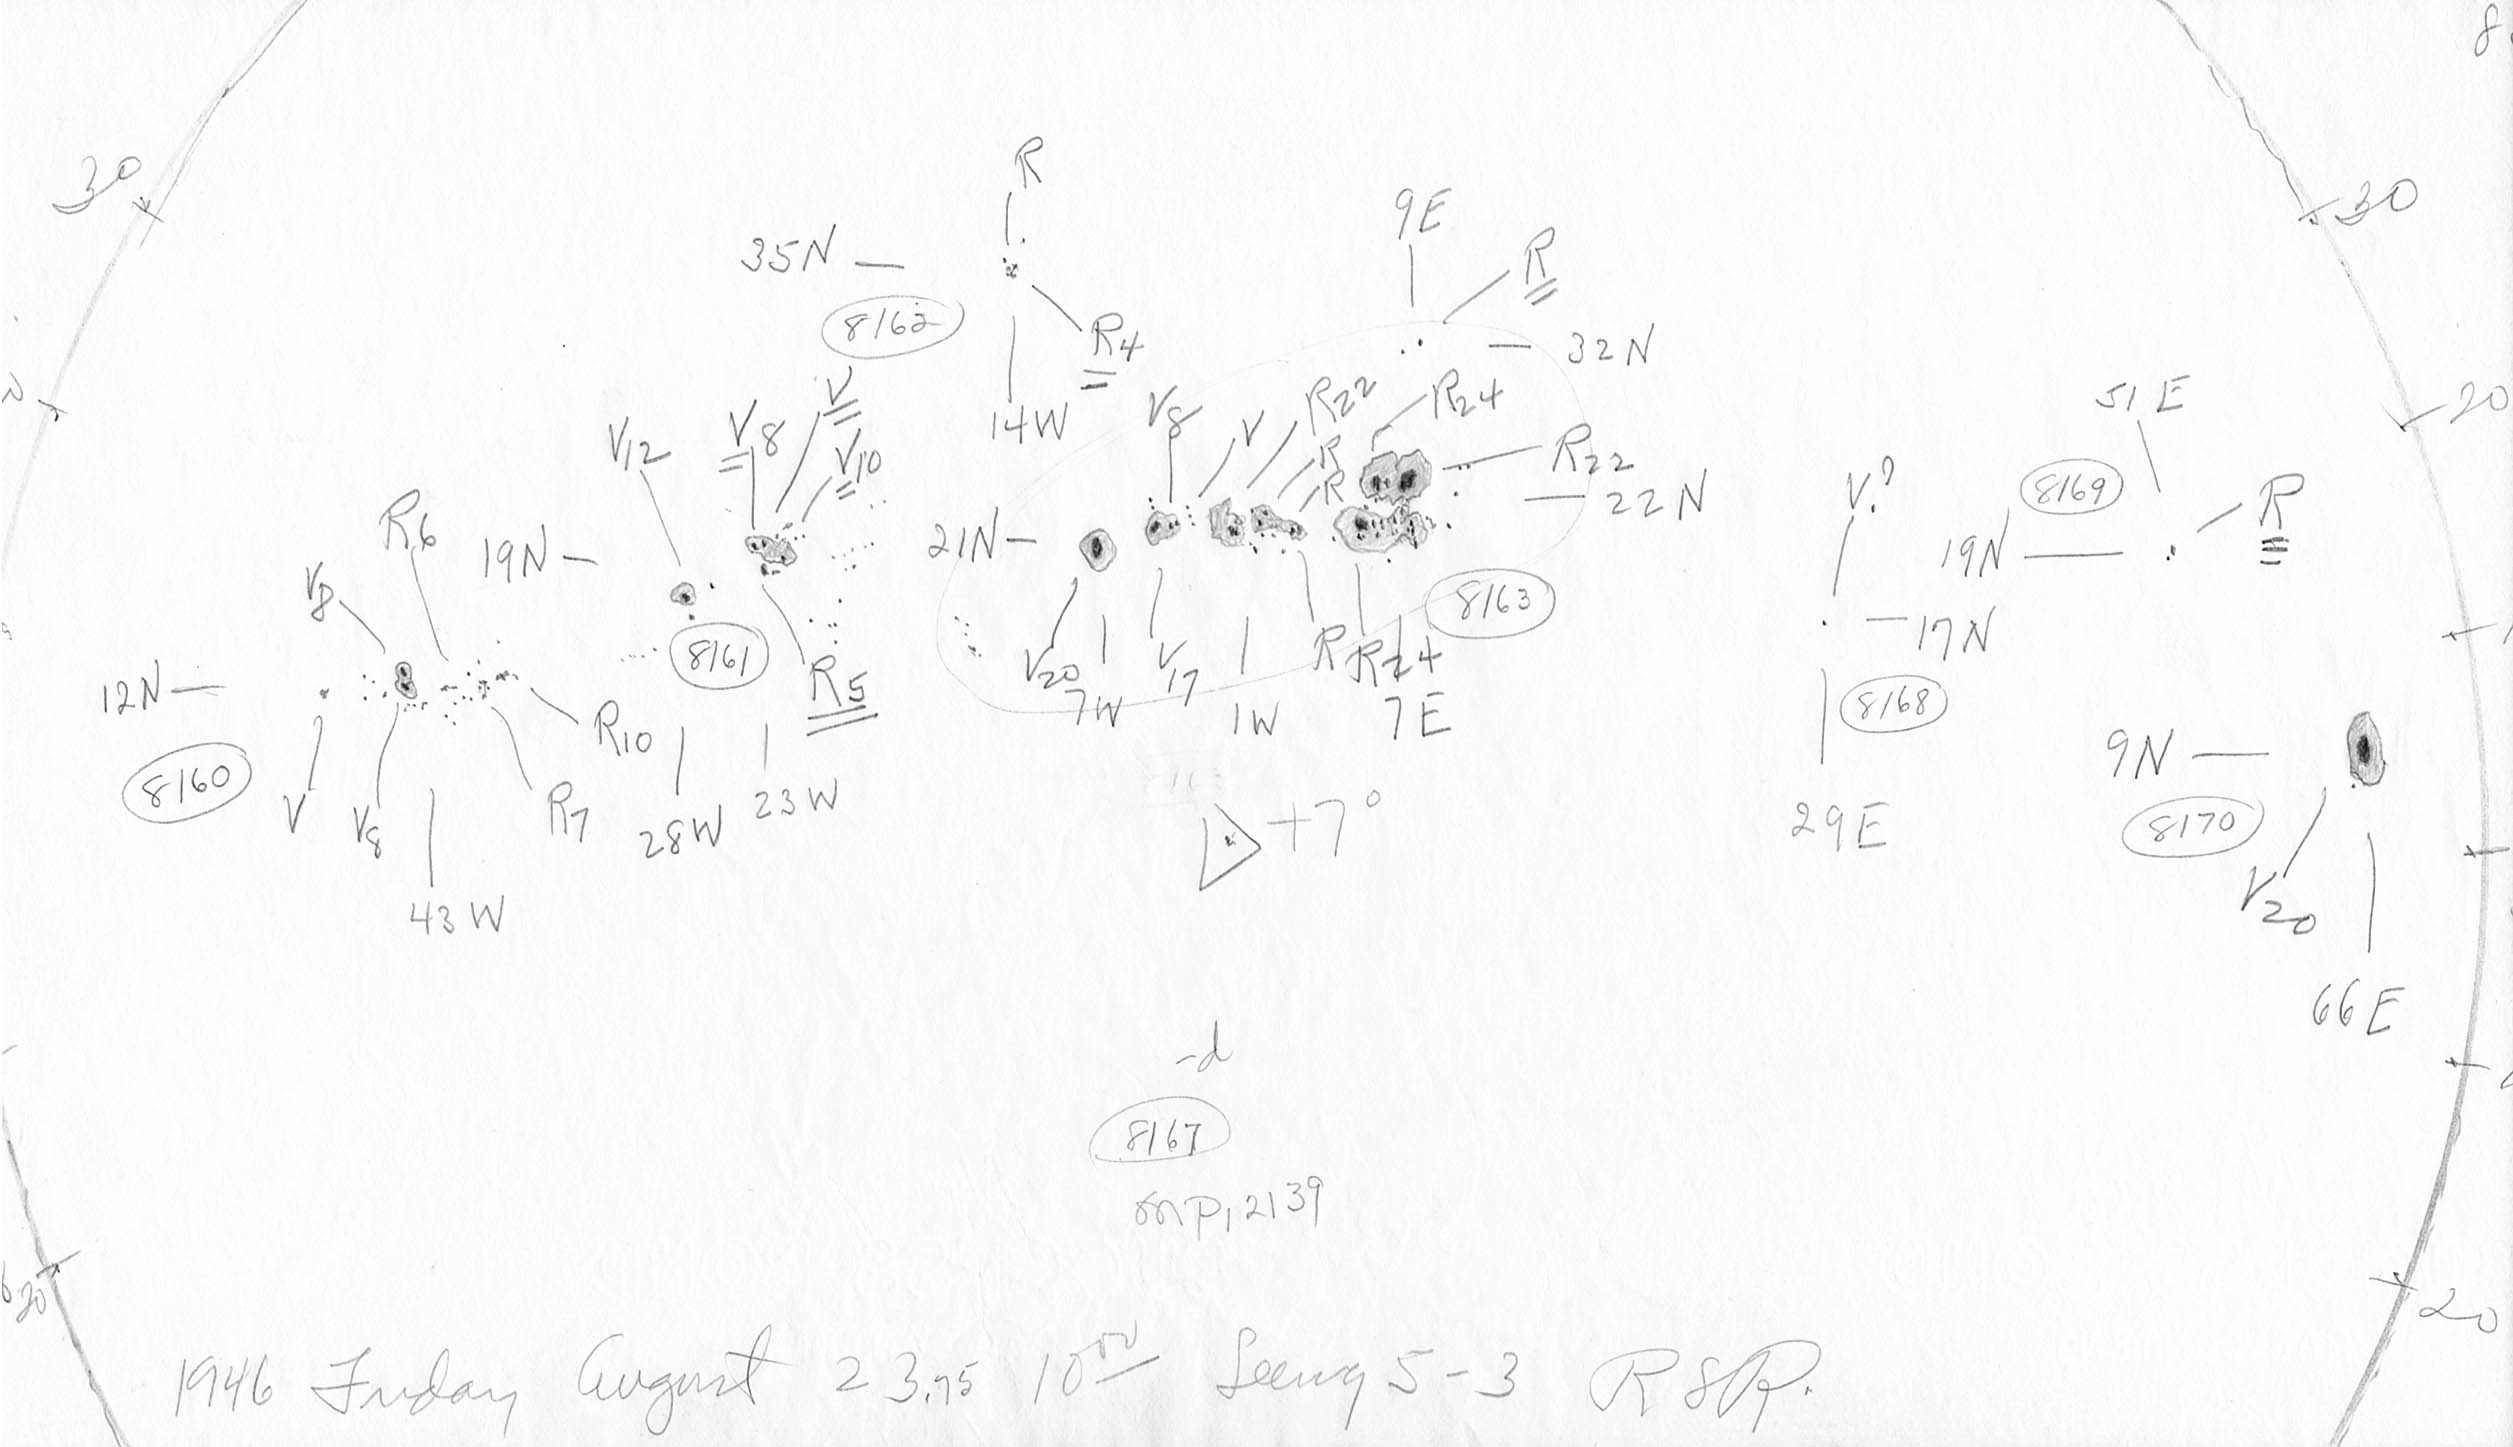 8
30
R
35N
8162
R4
14W
9E
R
32N
30
V12
V8
V
V10
V8
V
R22
R
R
R24
R22
22N
51E
20
V?
8169
R
19N
R6
V8
19N
21N
8163
17N
8168
29E
12N
8160
V
V8
43W
R10
R7
8161
28W
23W
R5
V20
7W
V17
1W
R
R24
7E
+7°
9N
8170
V20
66E
-d
8167
20
20
1946 Friday August 23.75 10 00 Seeing 5-3 RSR.